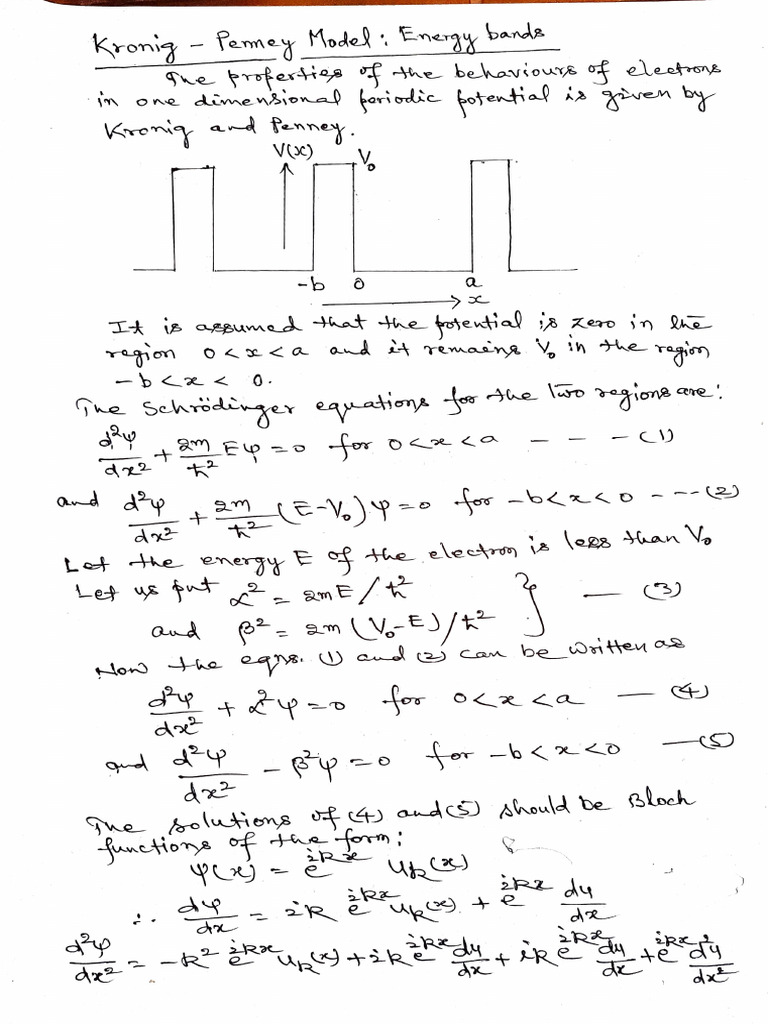 Kronig - Penney Model : Energy bands
The properties of the behaviours of electrons
in one dimensional periodic potential is given by
Kronig and Penney.
V(x)
V₀
-b 0 a
x
It is assumed that the potential is zero in the
region 0 < x < a and it remains V₀ in the region
-b < x < 0.
The Schrödinger equations for the two regions are:
d²ψ/dx² + 2m/ħ² Eψ = 0 for 0 < x < a - - - (1)
and d²ψ/dx² + 2m/ħ² (E-V₀) ψ = 0 for -b < x < 0 - - - (2)
Let the energy E of the electron is less than V₀
Let us put α² = 2mE/ħ²
and β² = 2m(V₀-E)/ħ² } — (3)
Now the eqns. (1) and (2) can be written as
d²ψ/dx² + α²ψ = 0 for 0 < x < a — (4)
and d²ψ/dx² - β²ψ = 0 for -b < x < 0 — (5)
The solutions of (4) and (5) should be Bloch
functions of the form:
ψ(x) = e^{ikx} u_k(x)
∴ dψ/dx = ik e^{ikx} u_k(x) + e^{ikx} du/dx
d²ψ/dx² = -k² e^{ikx} u_k(x) + ik e^{ikx} du/dx + ik e^{ikx} du/dx + e^{ikx} d²u/dx²